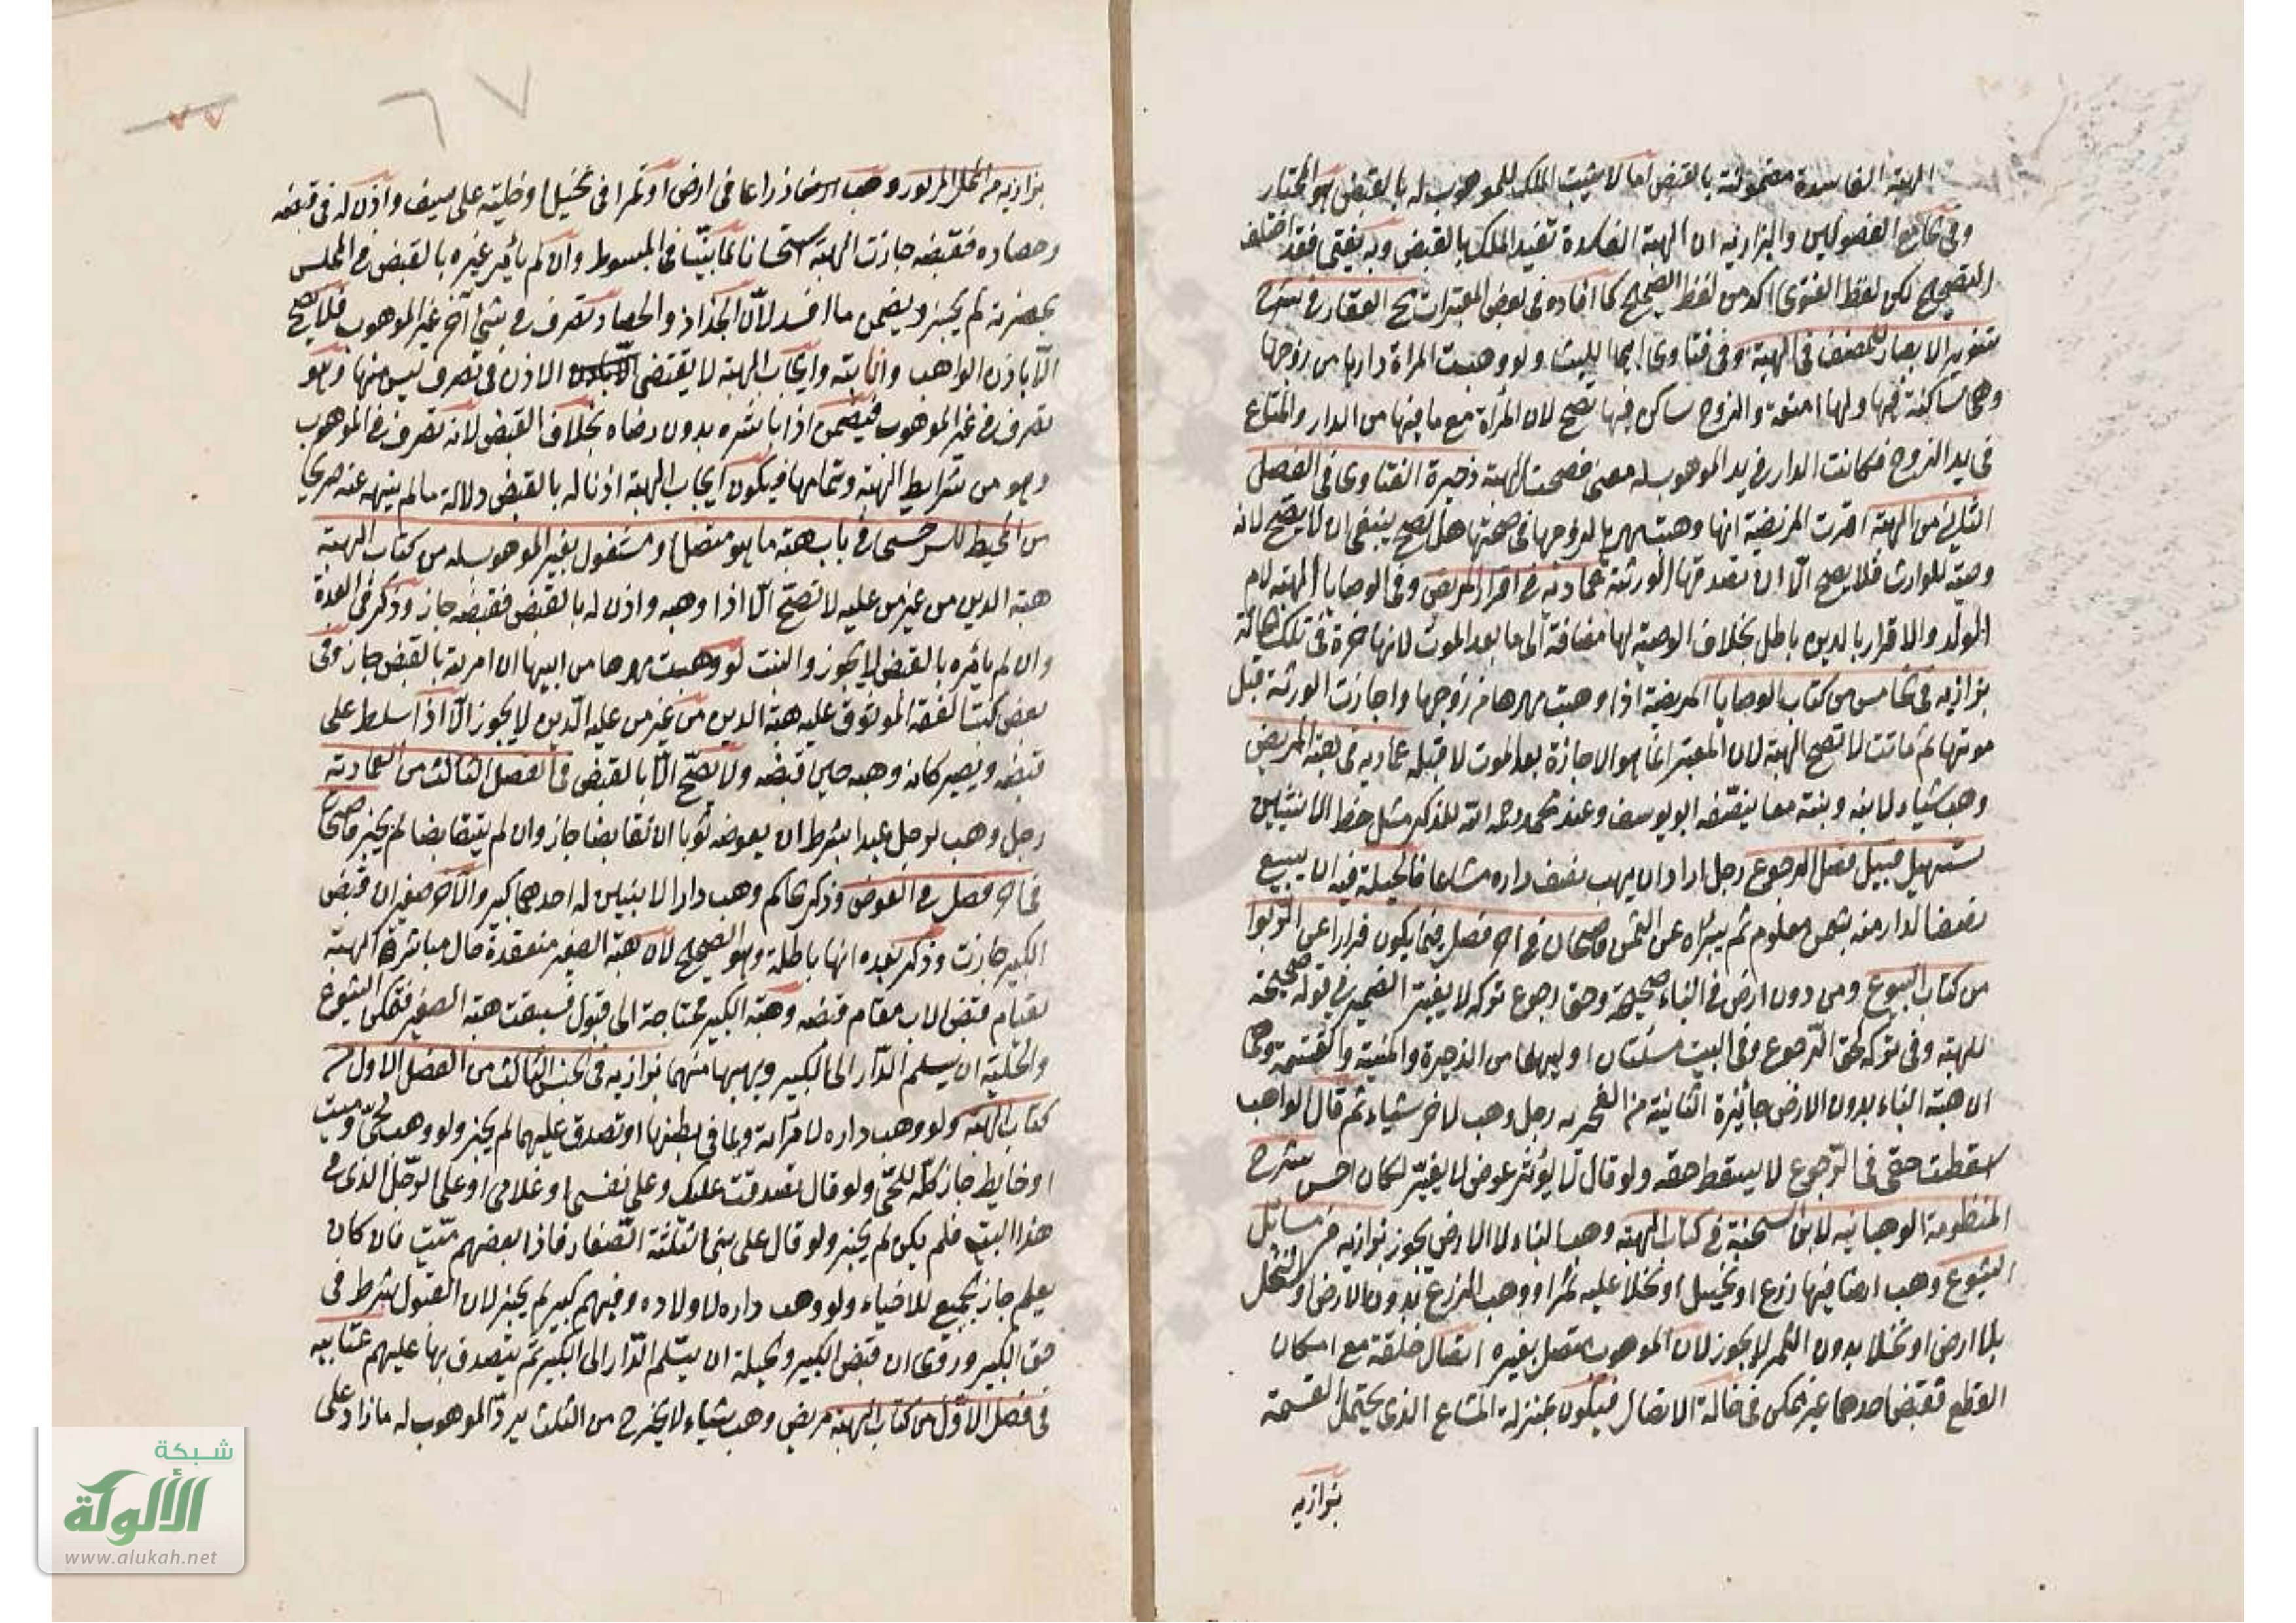 الهبة الفاسدة مضمونة بالقبض اما لا يثبت الملك للموهوب له بالقبض هو المختار
وفي جامع الفصولين والبزازية ان الهبة الفاسدة تفيد الملك بالقبض وبه يفتى فقد اختلف
التصحيح لكن لفظ الفتوى اكد من لفظ الصحيح كما افاده في بعض المعتبرات منح الغفار في شرح
تنوير الابصار للمصنف في الهبة وفي فتاوى ابي الليث ولو وهبت المراة دارها من زوجها
وهي ساكنة فيها ولها امتعة والزوج ساكن فيها تصح لان المرأة مع ما فيها من الدار والمتاع
في يد الزوج فكانت الدار في يد الموهوب له معنى فصحت الهبة ذخيرة الفتاوى في الفصل
الثاني من الهبة اقرت المريضة انها وهبت مهرها لزوجها في صحتها هل تصح ينبغي ان لا يصح لانه
وصية للوارث فلا يصح الا ان تصدقها الورثة عمادية في اقرار المريض وفي الوصايا الهبة لام
الولد والاقرار بالدين باطل بخلاف الوصية لها مضافة الى ما بعد الموت لانها حرة في تلك الحالة
بزازيه في الخامس من كتاب الوصايا المريضة اذا وهبت مهرها من زوجها واجازت الورثة قبل
موتها ثم ماتت لا تصح الهبة لان المعتبر انما هو الاجازة بعد الموت لا قبله عماديه في هبة المريض
وهب شياء لابنه وبنته معا ينصّفه ابو يوسف وعند محمد رحمه الله للذكر مثل حظ الانثيين
تسهيل قبيل فصل الرجوع رجل اراد ان يهب نصف داره مشاعا فالحيلة فيه ان يبيع
نصف الدار منه بثمن معلوم ثم يبرئه عن الثمن قاضيخان في اخر فصل فيما يكون فرارا عن الربوا
من كتاب البيوع ومن دون ارض في البناء صحيحة وحق رجوع تركه لا يغير الضمير في قوله صحيحة
للهبة وفي تركه لحق الرجوع وفي البيت مسئلتان اوليهما من الذخيرة والمنية والقسمة وهما
ان هبة البناء بدون الارض جائزة الثانية من رجل وهب لاخر شياء ثم قال الواهب
اسقطت حقي في الرجوع لا يسقط حقه ولو قال عوض لا يغير لكان احسن شرح
المنظومة الوهبانيه لابن الشحنة في كتاب الهبة وهب البناء لا الارض يجوز بزازيه من مسائل
الشيوع وهب ارضا فيها زرع او نخيل او نخلا عليه ثمر او وهب الزرع بدون الارض او النخل
بلا ارض او نخلا بدون الثمر لا يجوز لان الموهوب متصل بغيره اتصال خلقة مع امكان
القطع فقبض احدهما غير ممكن في حالة الاتصال فيكون بمنزلة المشاع الذي يحتمل القسمة
بزازيه
بزازيه من المحل المزبور وهب زراعا في ارض او ثمرا في نخيل او حلية على سيف واذن له في قبضه
وحصاده فقبضه جازت الهبة استحسانا لما بيّنّا في المبسوط وان لم يأمر غيره بالقبض في المجلس
بحضرته لم يجز ويضمن ما افسد لانّ الجذاذ والحصاد تصرف في شئ آخر غير الموهوب فلا يصح
الّا باذن الواهب وانابته وايجاب الهبة لا يقتضى الاذن في تصرف ليس منها وهو
تصرف في غير الموهوب فيضمن اذا باشره بدون رضاه بخلاف القبض لانه تصرف في الموهوب
وهو من شرايط الهبة وتمامها فيكون ايجاب الهبة اذنا له بالقبض دلالة ما لم ينهه عنه صريحا
من المحيط للسرخسى في باب هبة ما هو متصل او مشغول بغير الموهوب له من كتاب الهبة
هبة الدين من غير من عليه لا تصحّ الّا اذا وهبه واذن له بالقبض فقبضه جاز وذكر في العدة
وان لم يأمره بالقبض لا يجوز والبنت لو وهبت مهرها من ابيها ان امرته بالقبض جاز وفي
بعض كتب الفقه الموثوق عليه هبة الدين من غير من عليه الدّين لا يجوز الّا اذا سلط على
قبضه ويصير كانه وهبه حين قبضه ولا تصحّ الّا بالقبض في الفصل الثالث من العمادية
رجل وهب لرجل عبدا بشرط ان يعوضه ثوبا ان تقابضا جاز وان لم يتقابضا لم يجز قاضيخان
في اخر فصل في العوض وذكر الحاكم وهب دارا لابنين له احدهما كبير والآخر صغير ان قبض
الكبير جازت وذكر بعده انها باطلة وهو الصحيح لان هبة الصغير منعقدة حال مباشرة الهبة
لقيام قبض الاب مقام قبضه وهبة الكبير محتاجة الى قبول فسبقت هبة الصغير فتمكن الشيوع
والحيلة ان يسلم الدّار الى الكبير ويهبها منهما بزازيه في الجنس الثالث من الفصل الاول من
كتاب الهبة ولو وهب داره لامرأته ولما في بطنها او تصدق عليهما لم يجز ولو وهب لحيّ وميت
او حايط جاز كلّه للحيّ ولو قال تصدقت عليك وعلى نفسى او غلامى او على الرّجل الذى في
هذا البيت فلم يكن لم يجز ولو قال على بنىّ الثلثة الصّغار فاذا بعضهم ميّت فان كان
يعلم جاز الجميع للاحياء ولو وهب داره لاولاده وفيهم كبير لم يجز لان القبول شرط في
حق الكبير وروى ان قبض الكبير والحيلة ان يسّلم الدّار الى الكبير ثم يتصدق بها عليهم عتّابيه
في فصل الاوّل من كتاب الهبة مريض وهب شياء لا يخرج من الثلث يردّ الموهوب له ما زاد على
٦٧
شبكة
الألوكة
www.alukah.net